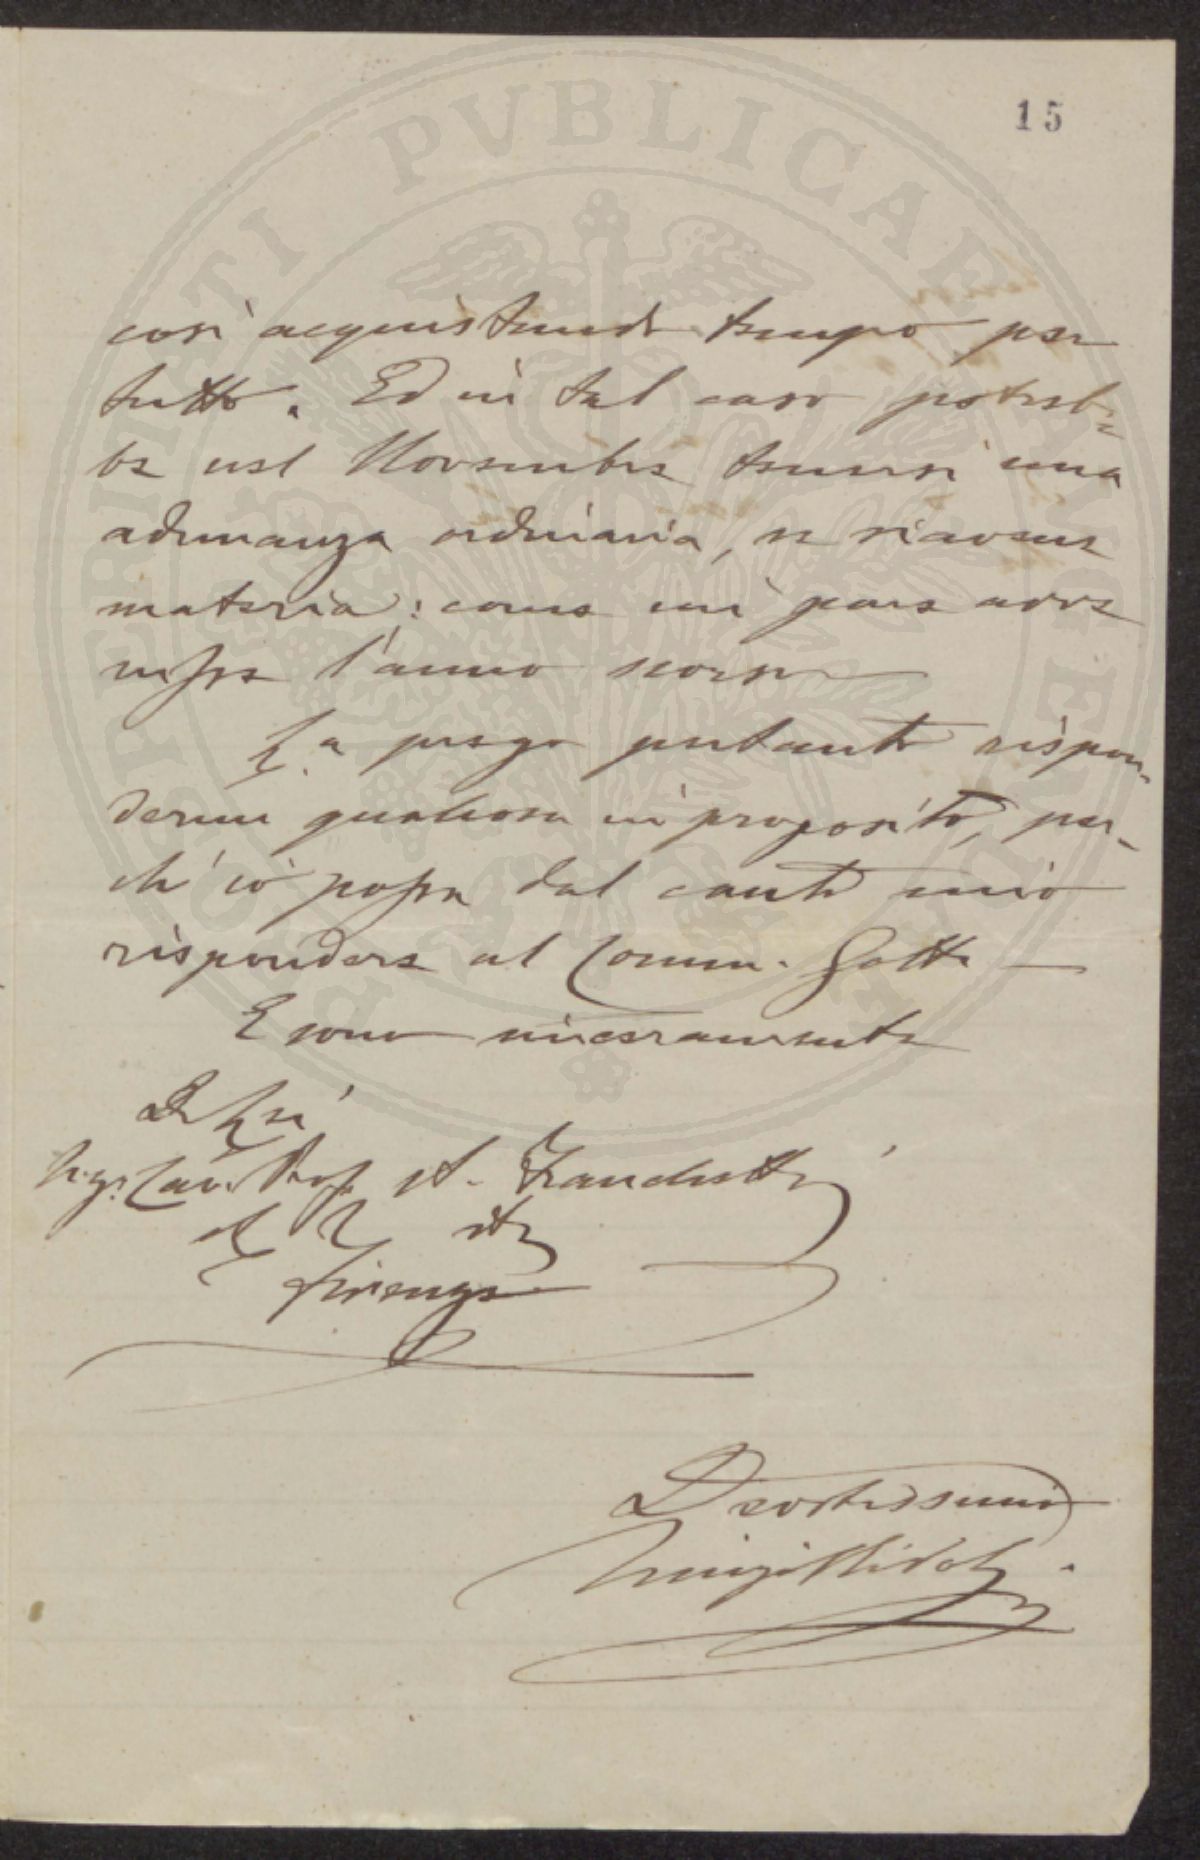 15
così acquistando tempo per
tutto. Ed in tal caso potreb=
be nel Novembre tenersi una
adunanza ordinaria, se vi avesse
materia: come mi pare avve
nisse l'anno scorso
La prego pertanto rispon-
dermi qualcosa in proposito, per-
chè io possa dal canto mio
rispondere al Comm. Gotti
E sono sinceramente
Di Lei
Sigr. Cav. Prof. A. Franchetti
etc.
Firenze
Devotissimo
Luigi Ridolfi
PROSPERITATI PVBLICAE AVGENDAE